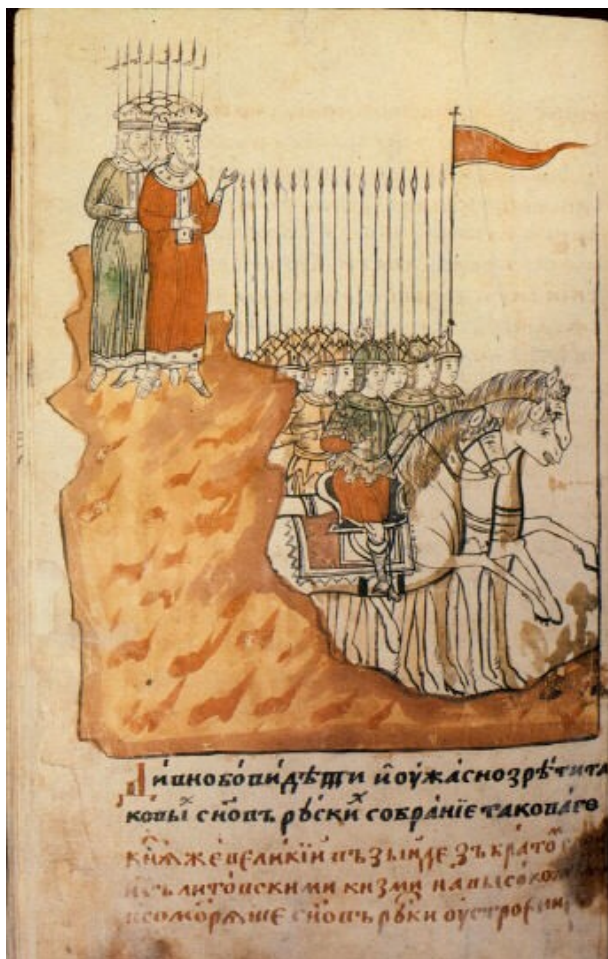 Дивно бо видѣти и оужасно зрѣти та
ковы сн҃овъ рꙋски собранїе таковаго
кн҃ѧже великїи възыиде зъ брато
и съ литовскими кн҃зми на высоко
сн҃овъ рꙋски оустроєни